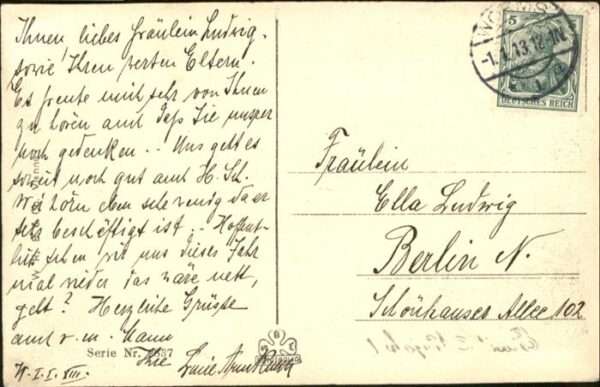 Ihnen liebes Fräulein Ludwig.
sowie Ihren werten Eltern.
Es freute mich sehr von Ihnen
zu hören auch daß Sie unser
noch gedenken.. Uns geht es
soweit noch gut auch H. Sch.
Wir hören sehr wenig da er
sehr beschäftigt ist.. Hoffent-
lich sehen wir uns dieses Jahr
mal wieder das wäre nett,
gelt? Herzliche Grüße
auch v. m. Mann
Ihre
W. I. I. XIII.
Serie Nr.
WORMS
-1.1.13.12-1N.
5
DEUTSCHES REICH
Fräulein
Ella Ludwig
Berlin N.
Schönhauser Allee 102